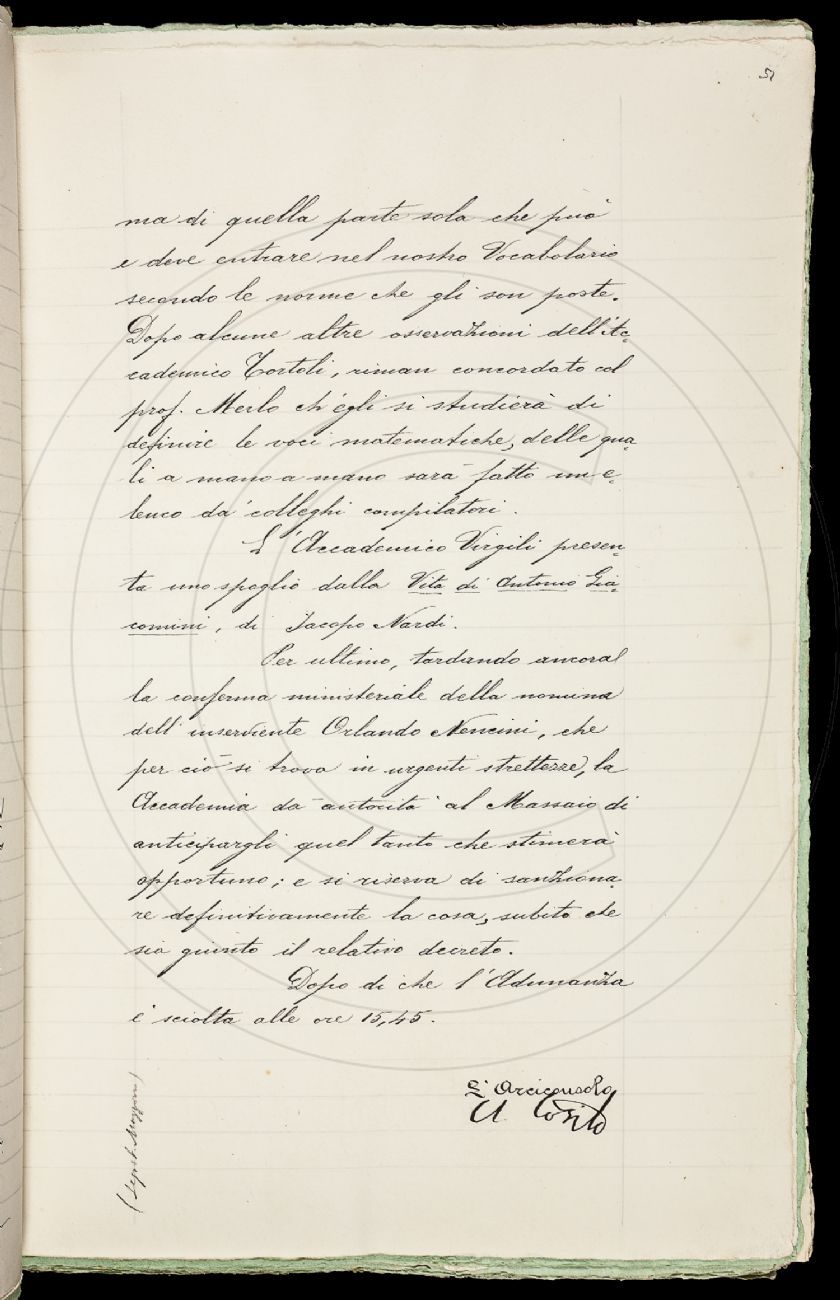 51
ma di quella parte sola che può
e deve entrare nel nostro Vocabolario
secondo le norme che gli son poste.
Dopo alcune altre osservazioni dell'Ac-
cademico Tortoli, riman concordato col
prof. Merlo ch'egli si studierà di
definire le voci matematiche, delle qua-
li a mano a mano sarà fatto un e-
lenco da' colleghi compilatori.
L'Accademico Virgili presen-
ta uno spoglio dalla Vita di Antonio Gia-
comini, di Jacopo Nardi.
Per ultimo, tardando ancora
la conferma ministeriale della nomina
dell'inserviente Orlando Nencini, che
per ciò si trova in urgenti strettezze, la
Accademia dà autorità al Massaio di
anticipargli quel tanto che stimerà
opportuno; e si riserva di sanziona-
re definitivamente la cosa, subito che
sia giunto il relativo decreto.
Dopo di che l'Adunanza
è sciolta alle ore 15,45.
L'Arciconsolo
A.